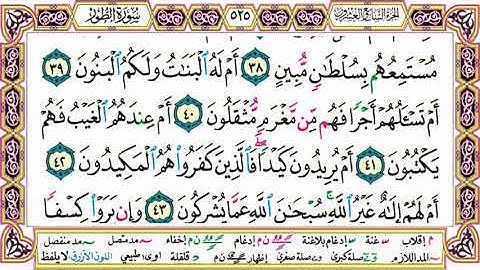 الجزء السابع والعشرون ٥٢٥ سورة الطور
مُسْتَمِعُهُم بِسُلْطَٰنٍ مُّبِينٍ ٣٨ أَمْ لَهُ ٱلْبَنَٰتُ وَلَكُمُ ٱلْبَنُونَ ٣٩
أَمْ تَسْـَٔلُهُمْ أَجْرًا فَهُم مِّن مَّغْرَمٍ مُّثْقَلُونَ ٤٠ أَمْ عِندَهُمُ ٱلْغَيْبُ فَهُمْ
يَكْتُبُونَ ٤١ أَمْ يُرِيدُونَ كَيْدًا ۖ فَٱلَّذِينَ كَفَرُوا۟ هُمُ ٱلْمَكِيدُونَ ٤٢
أَمْ لَهُمْ إِلَٰهٌ غَيْرُ ٱللَّهِ ۚ سُبْحَٰنَ ٱللَّهِ عَمَّا يُشْرِكُونَ ٤٣ وَإِن يَرَوْا۟ كِسْفًا
م إقلاب غنة إدغام بلاغنة ن م إدغام ن م إخفاء مد متصل مد منفصل
المد اللازم صلة كبرى صلة صغرى إظهار ن م قلقلة طبيعي اللون الأزرق لا يلفظ